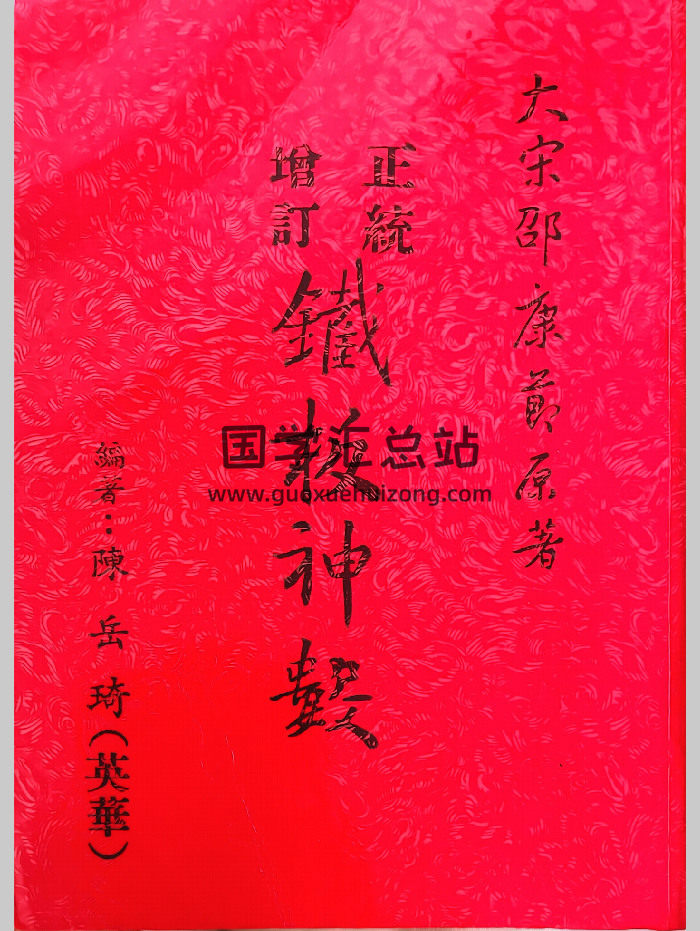 大宋邵康節原著
正統
增訂
鐵板神數
編著：陳岳琦（英華）
国学汇总站
www.guoxuehuizong.com